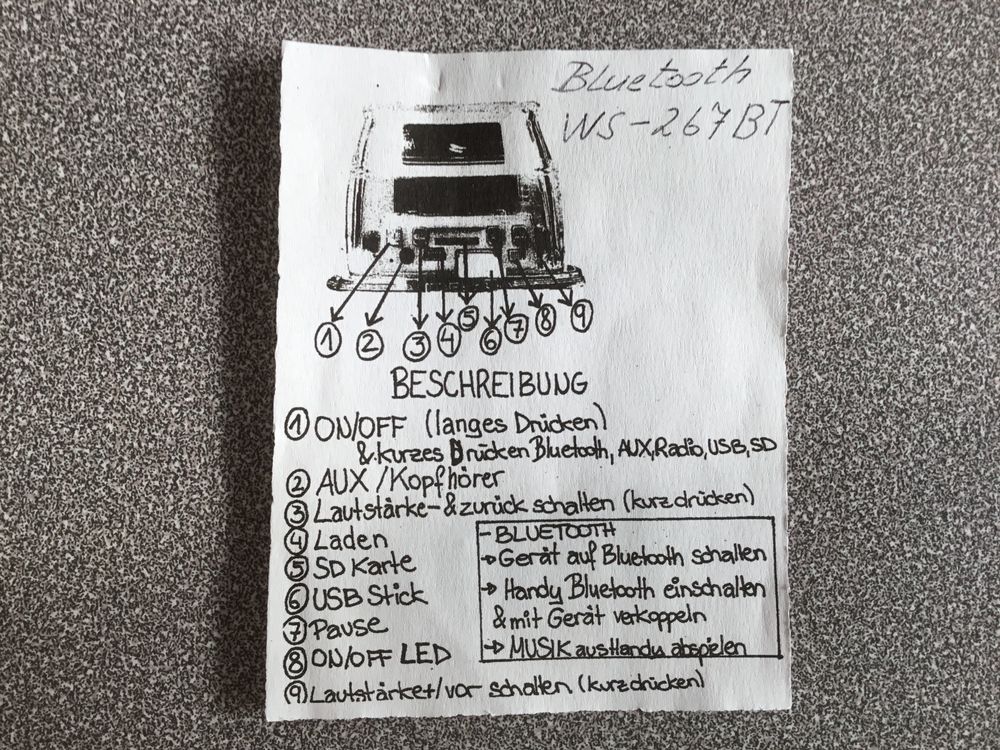 Bluetooth
WS-267BT
1 2 3 4 5 6 7 8 9
BESCHREIBUNG
1 ON/OFF (langes Drücken)
& kurzes Drücken Bluetooth, AUX, Radio, USB, SD
2 AUX/Kopfhörer
3 Lautstärke- & zurück schalten (kurz drücken)
4 Laden
5 SD Karte
6 USB Stick
7 Pause
8 ON/OFF LED
9 Lautstärke+/vor schalten (kurz drücken)
- BLUETOOTH
→ Gerät auf Bluetooth schallen
→ Handy Bluetooth einschalten
& mit Gerät verkoppeln
→ MUSIK aus Handy abspielen